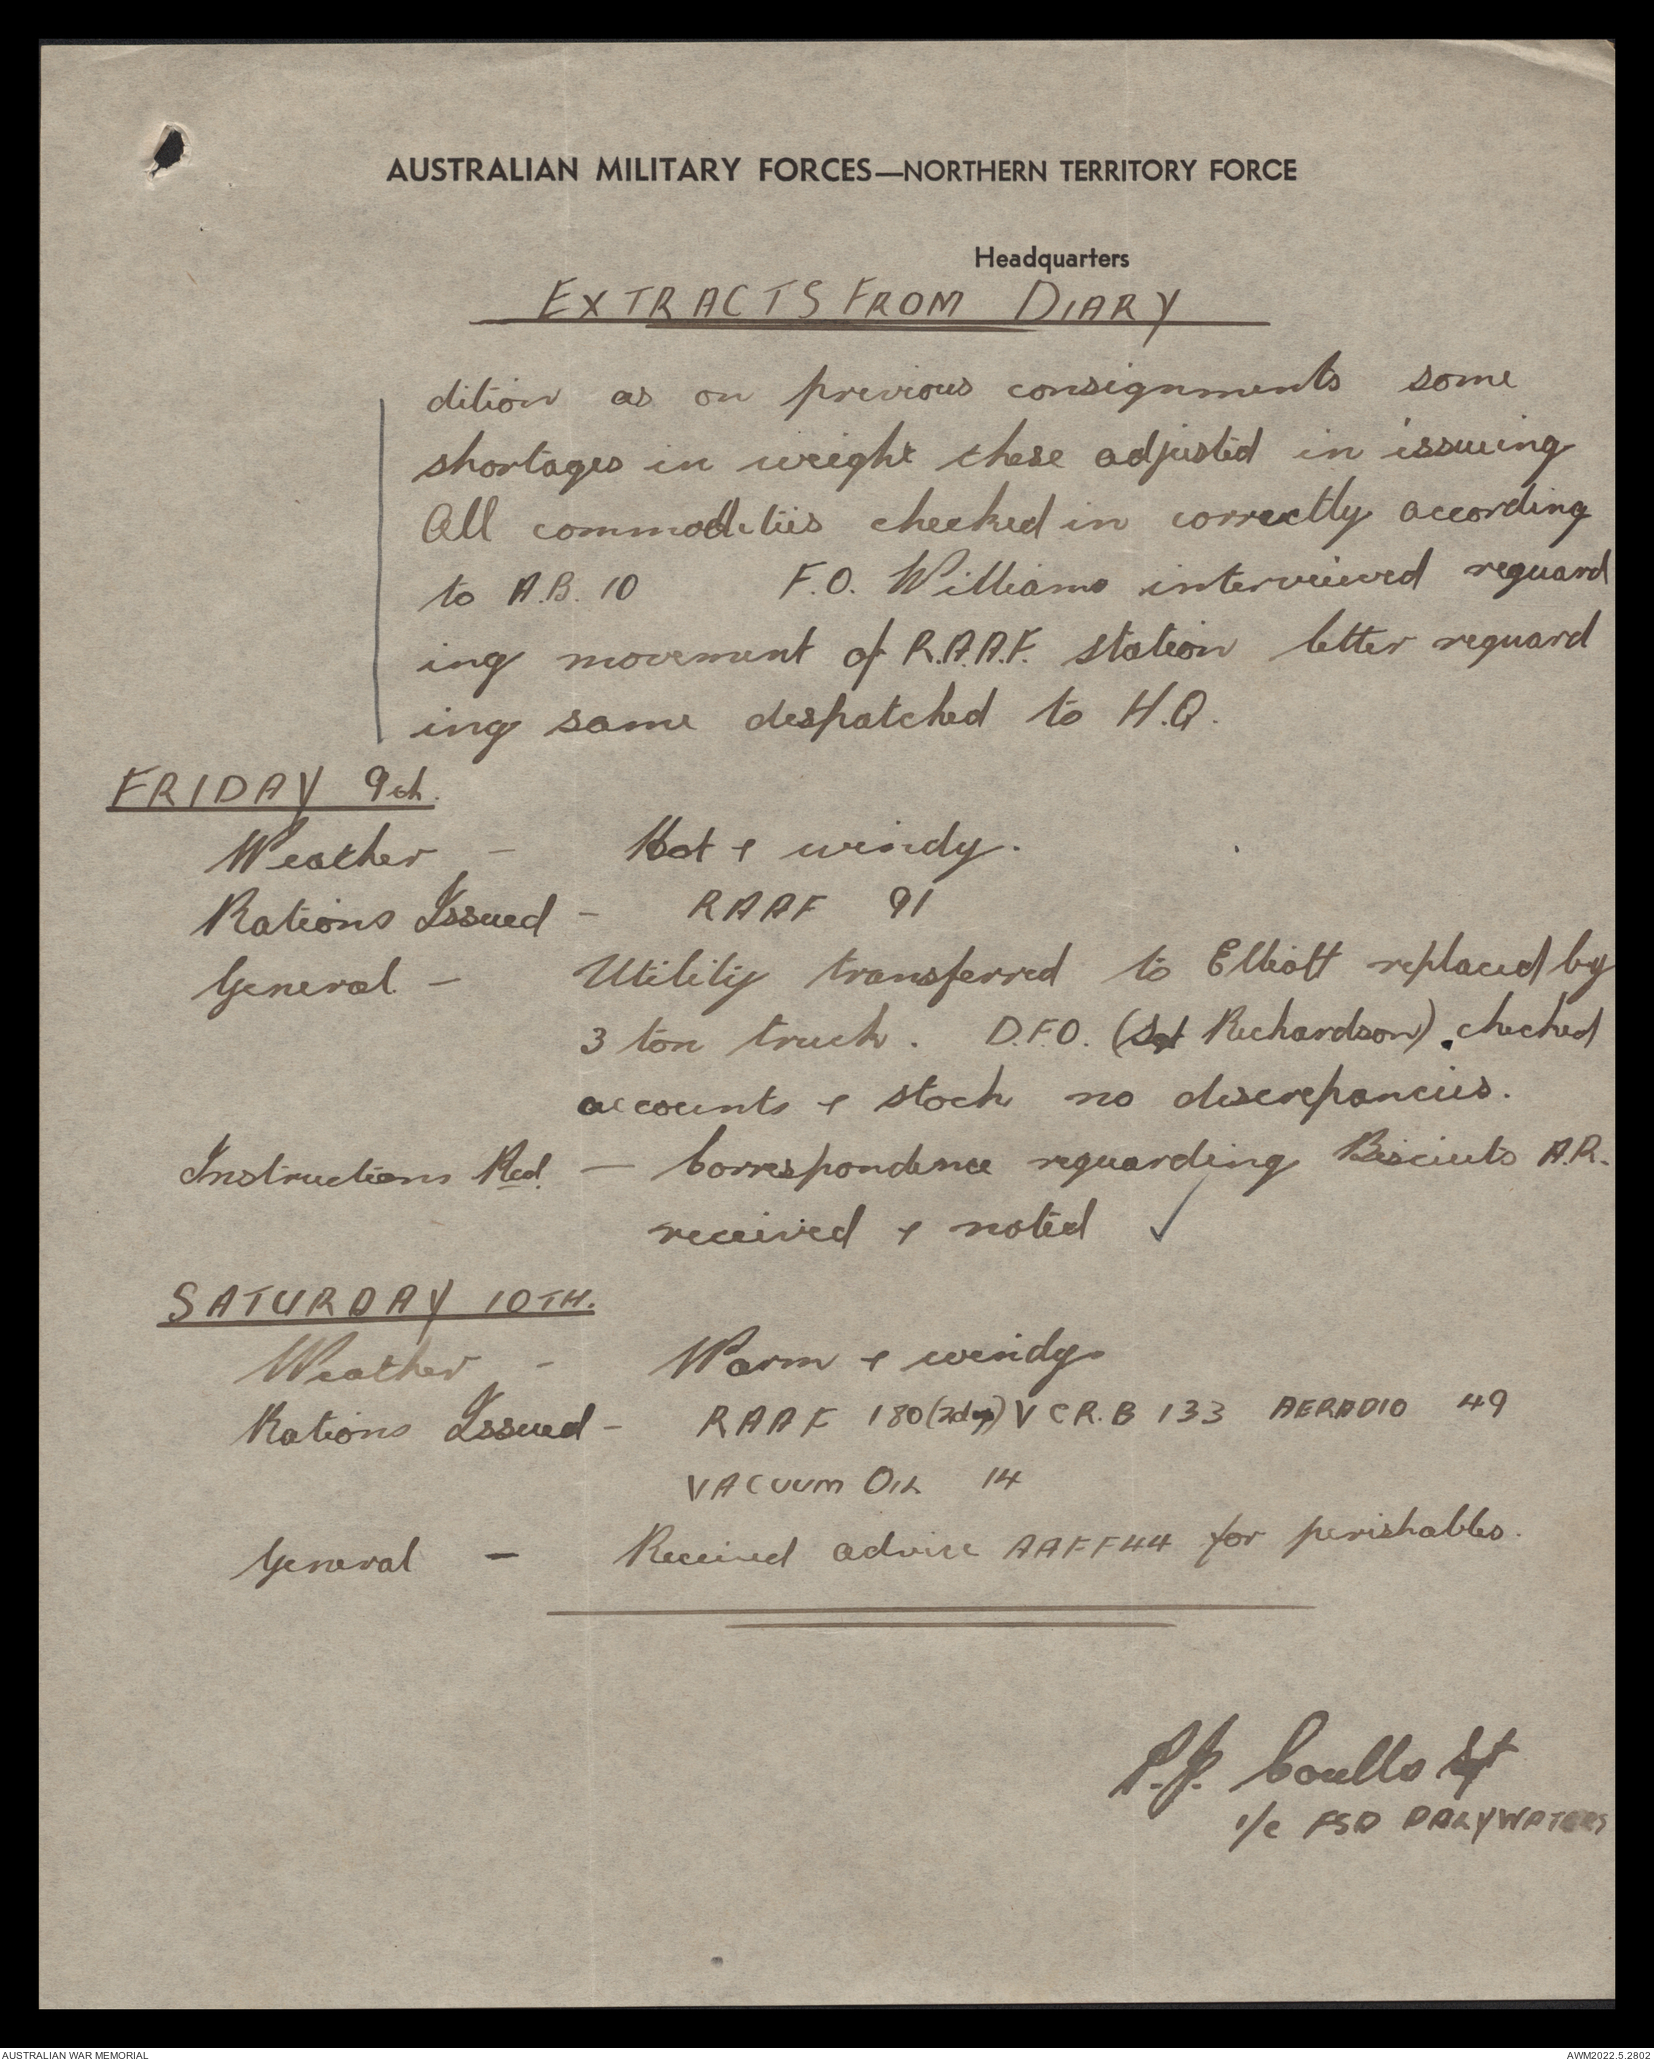 AUSTRALIAN MILITARY FORCES—NORTHERN TERRITORY FORCE
Headquarters
EXTRACTS FROM DIARY
dition as on previous consignments some
shortages in weight these adjusted in issueing
All commodities checked in correctly according
to A.B. 10 F.O. Williams interveiwed reguard
ing movement of R.A.A.F. station letter reguard
ing same despatched to H.Q.
FRIDAY 9th.
Weather - Hot & windy.
Rations Issued - RAAF 91
General - Utility transferred to Elliott replaced by
3 ton truck. D.F.O. (Sgt Richardson). checked
accounts & stock no discrepancies.
Instructions Rcd. - Correspondence reguarding Bisciuts A.R.
received & noted ✓
SATURDAY 10TH.
Weather - Warm & windy.
Rations Issued - RAAF 180 (2 days) V C R.B 133 AERADIO 49
VACUUM OIL 14
General - Received advice AAFF44 for perishables.
P.J. Coulls Sgt
i/c FSD DALY WATERS
AUSTRALIAN WAR MEMORIAL
AWM2022.5.2802